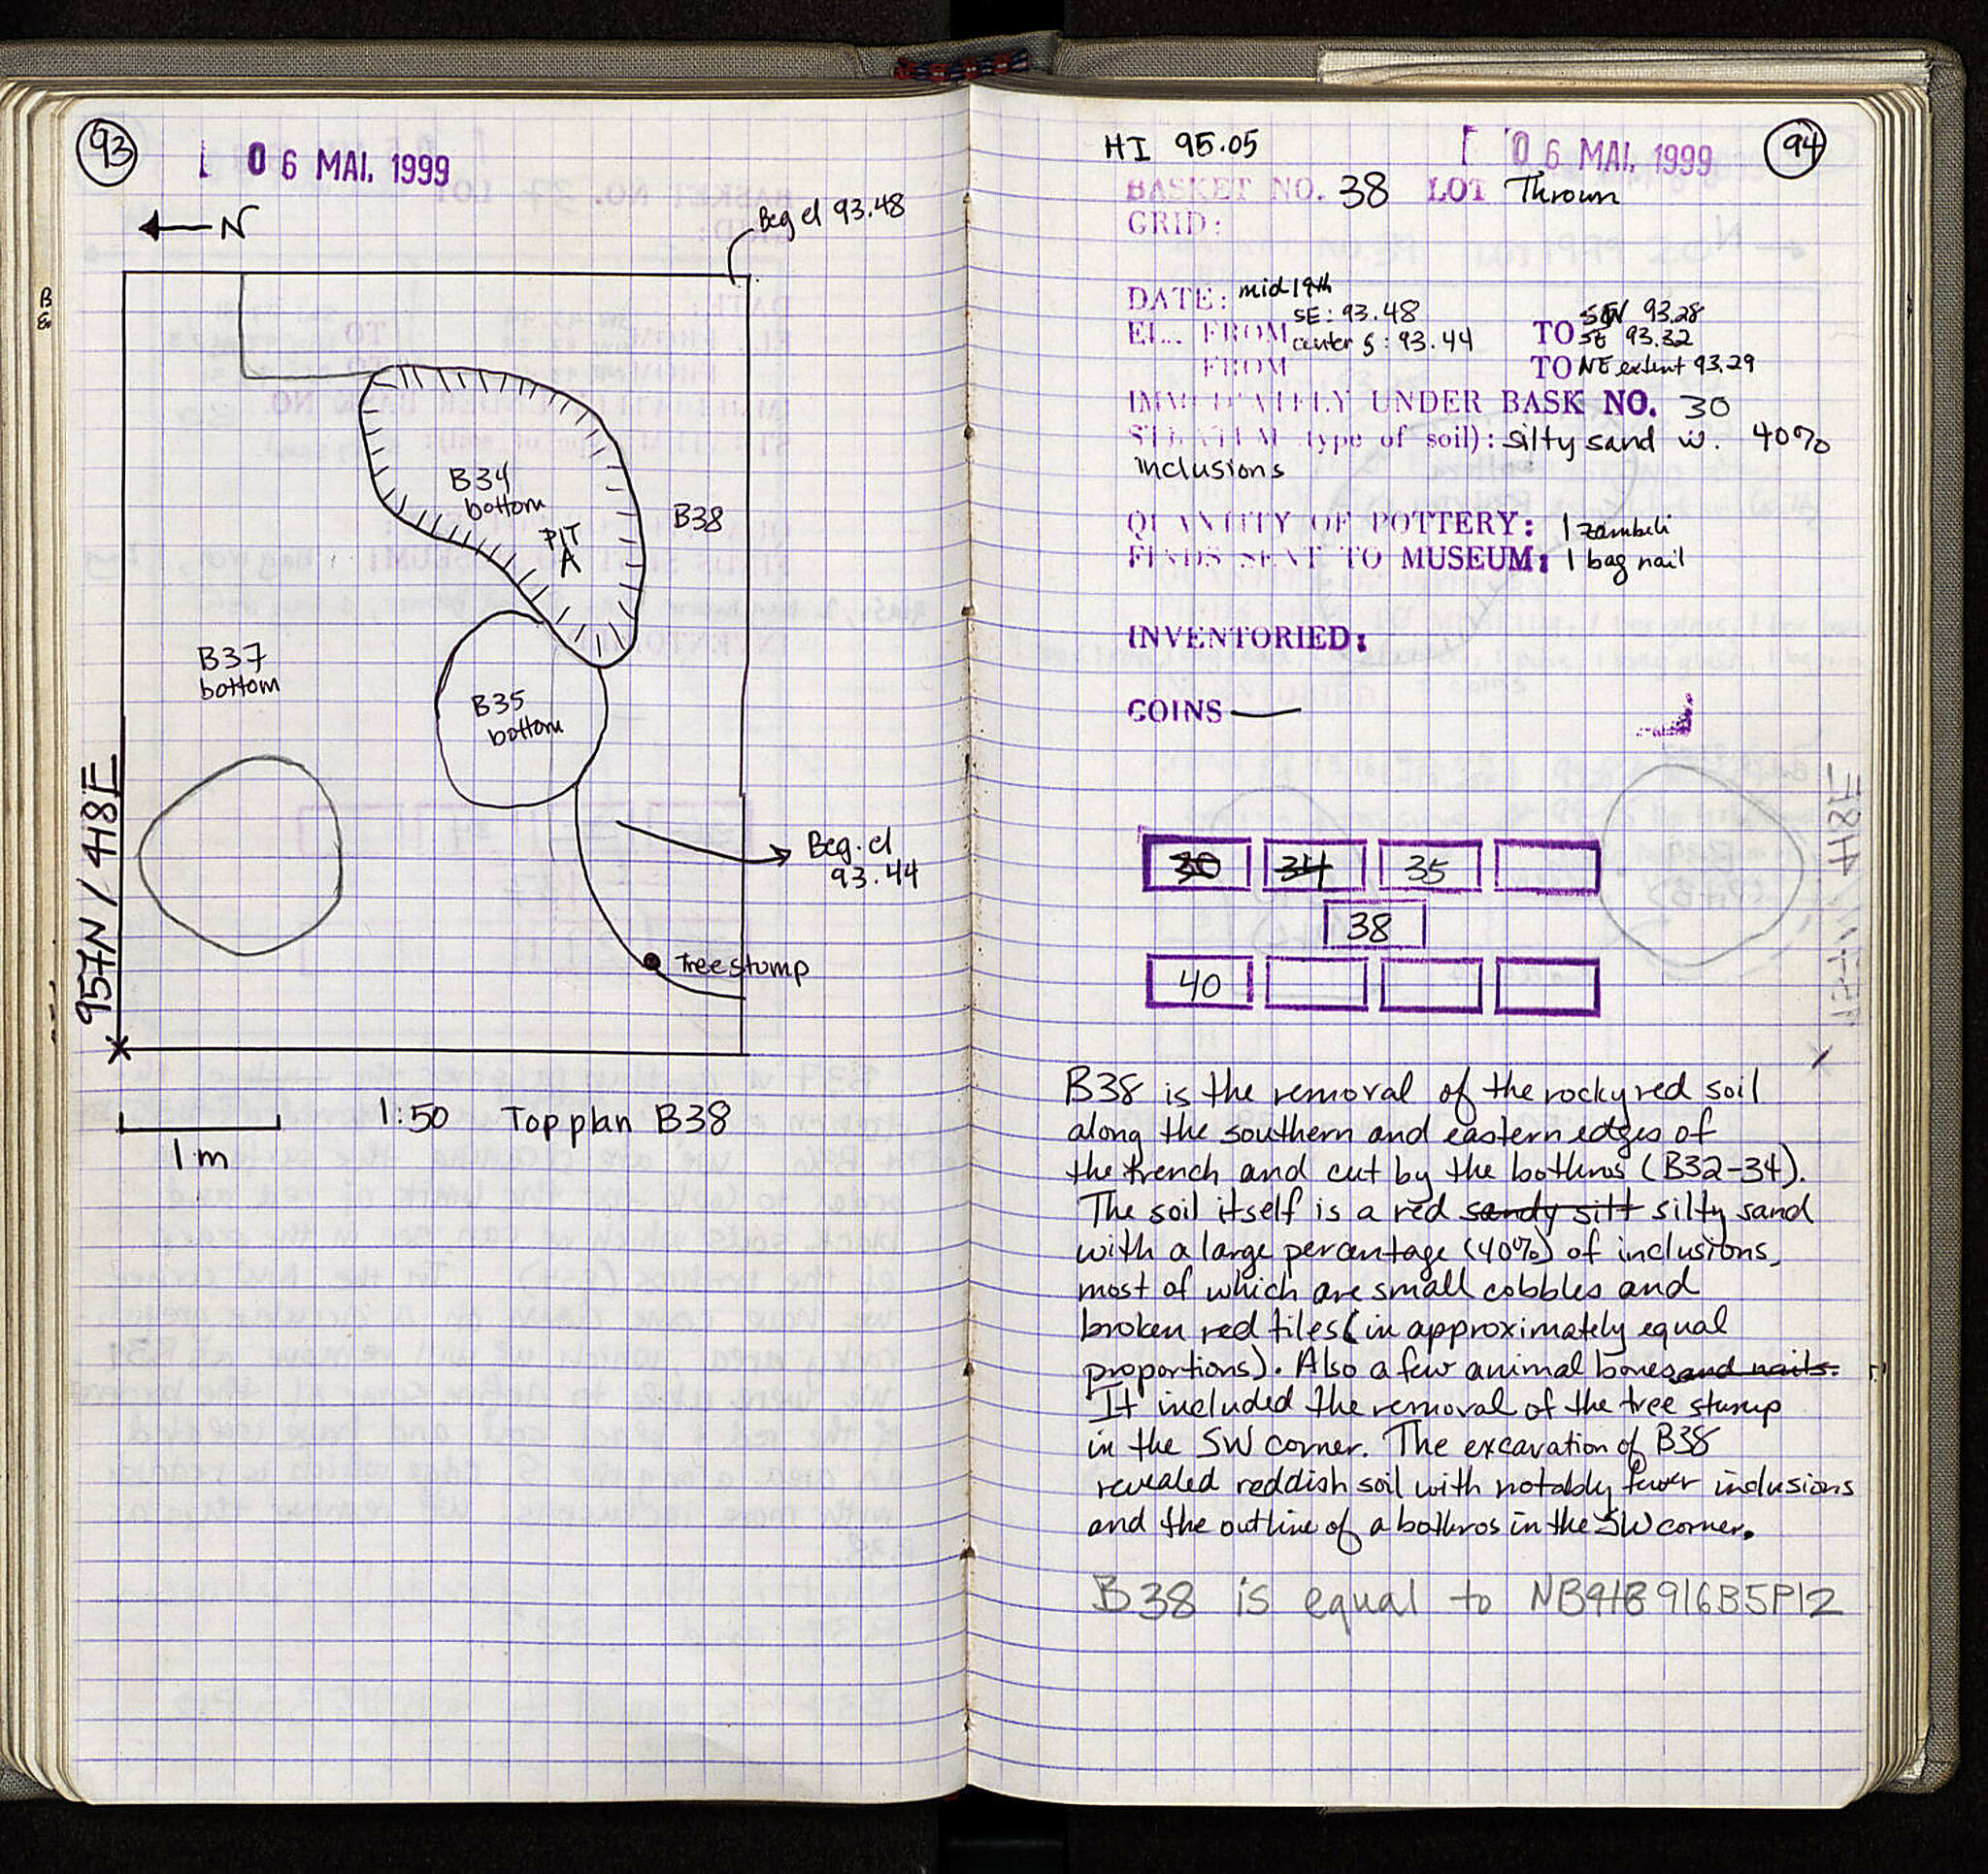 93
06 MAI. 1999
N
Beg el 93.48
B34
bottom
PIT
A
B38
B37
bottom
B35
bottom
957N / 448E
Beg. el
93.44
Tree stump
1:50 Top plan B38
1 m
HI 95.05
06 MAI. 1999
94
BASKET NO. 38 LOT Thrown
GRID:
DATE: mid 19th
EL. FROM SE: 93.48 TO SW 93.28
center S: 93.44 SE 93.32
FROM TO NE extent 93.29
IMMEDIATELY UNDER BASK NO. 30
STRATUM (type of soil): silty sand w. 40%
inclusions
QUANTITY OF POTTERY: 1 zambili
FINDS SENT TO MUSEUM: 1 bag nail
INVENTORIED:
COINS —
30 34 35
38
40
B38 is the removal of the rocky red soil
along the southern and eastern edges of
the trench and cut by the bothros (B32-34).
The soil itself is a red sandy silt silty sand
with a large percentage (40%) of inclusions,
most of which are small cobbles and
broken red tiles (in approximately equal
proportions). Also a few animal bones and nails.
It included the removal of the tree stump
in the SW corner. The excavation of B38
revealed reddish soil with notably fewer inclusions
and the outline of a bothros in the SW corner.
B38 is equal to NB918 916B5P12